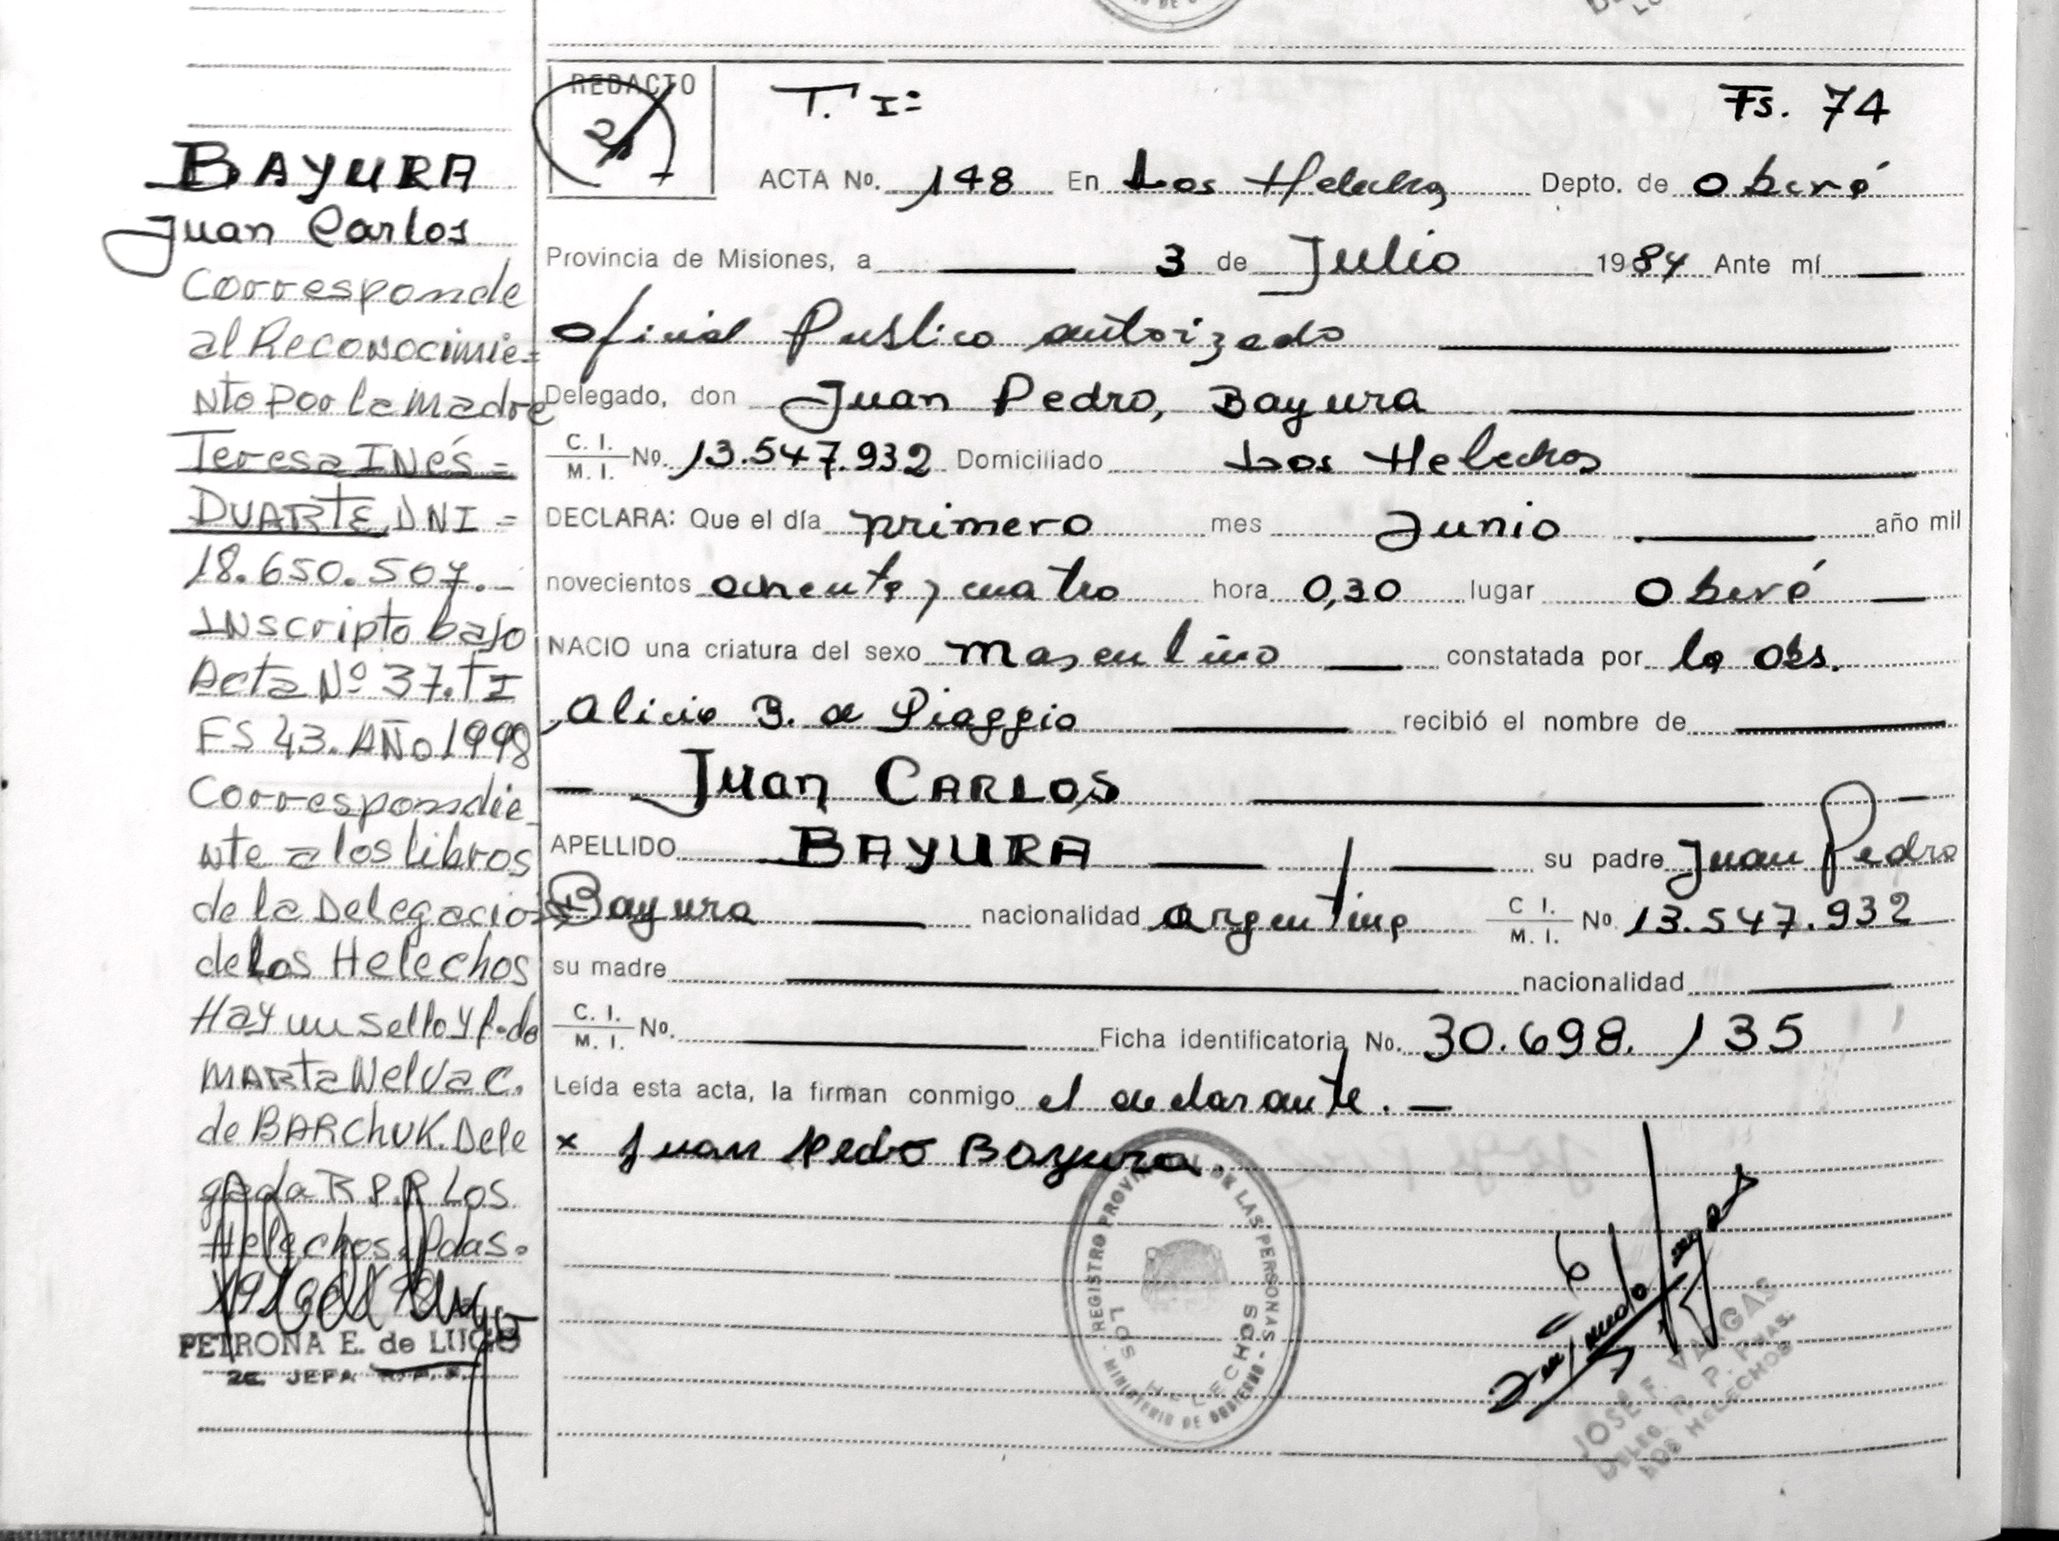 BAYURA
Juan Carlos
Corresponde
al Reconocimie=
nto por la madre
Teresa INés=
DUARTE, DNI=
18.650.507.-
INscripto bajo
Acta Nº 37.TI
FS 43. AÑO 1998
Correspondie_
nte a los libros
de la Delegacion
de Los Helechos
Hay un sello y f. de
MARTA Nelva C.
de BARCHUK. Dele
gada R.P.P. Los
Helechos. Pdas.
PETRONA E. de LUGO
2E. JEFA R.P.P.
REDACTO
T. I=
Fs. 74
ACTA No. 148 En Los Helechos Depto. de Oberá
Provincia de Misiones, a 3 de Julio 1984 Ante mí
Oficial Publico autorizado
Delegado, don Juan Pedro, Bayura
C. I. / M. I. No. 13.547.932 Domiciliado Los Helechos
DECLARA: Que el día primero mes Junio año mil
novecientos ochenta y cuatro hora 0,30 lugar Oberá
NACIO una criatura del sexo masculino constatada por la Obs.
Alicia B. de Piaggio recibió el nombre de
Juan CARLOS
APELLIDO BAYURA su padre Juan Pedro
Bayura nacionalidad argentina C I. / M. I. No. 13.547.932
su madre nacionalidad
C. I. / M. I. No. Ficha identificatoria No. 30.698.135
Leída esta acta, la firman conmigo el declarante.-
x Juan Pedro Bayura.
REGISTRO PROVINCIAL DE LAS PERSONAS
LOS HELECHOS
MINISTERIO DE GOBIERNO
JOSE F. VARGAS
DELEG. R. P. P. PNAS.
LOS HELECHOS